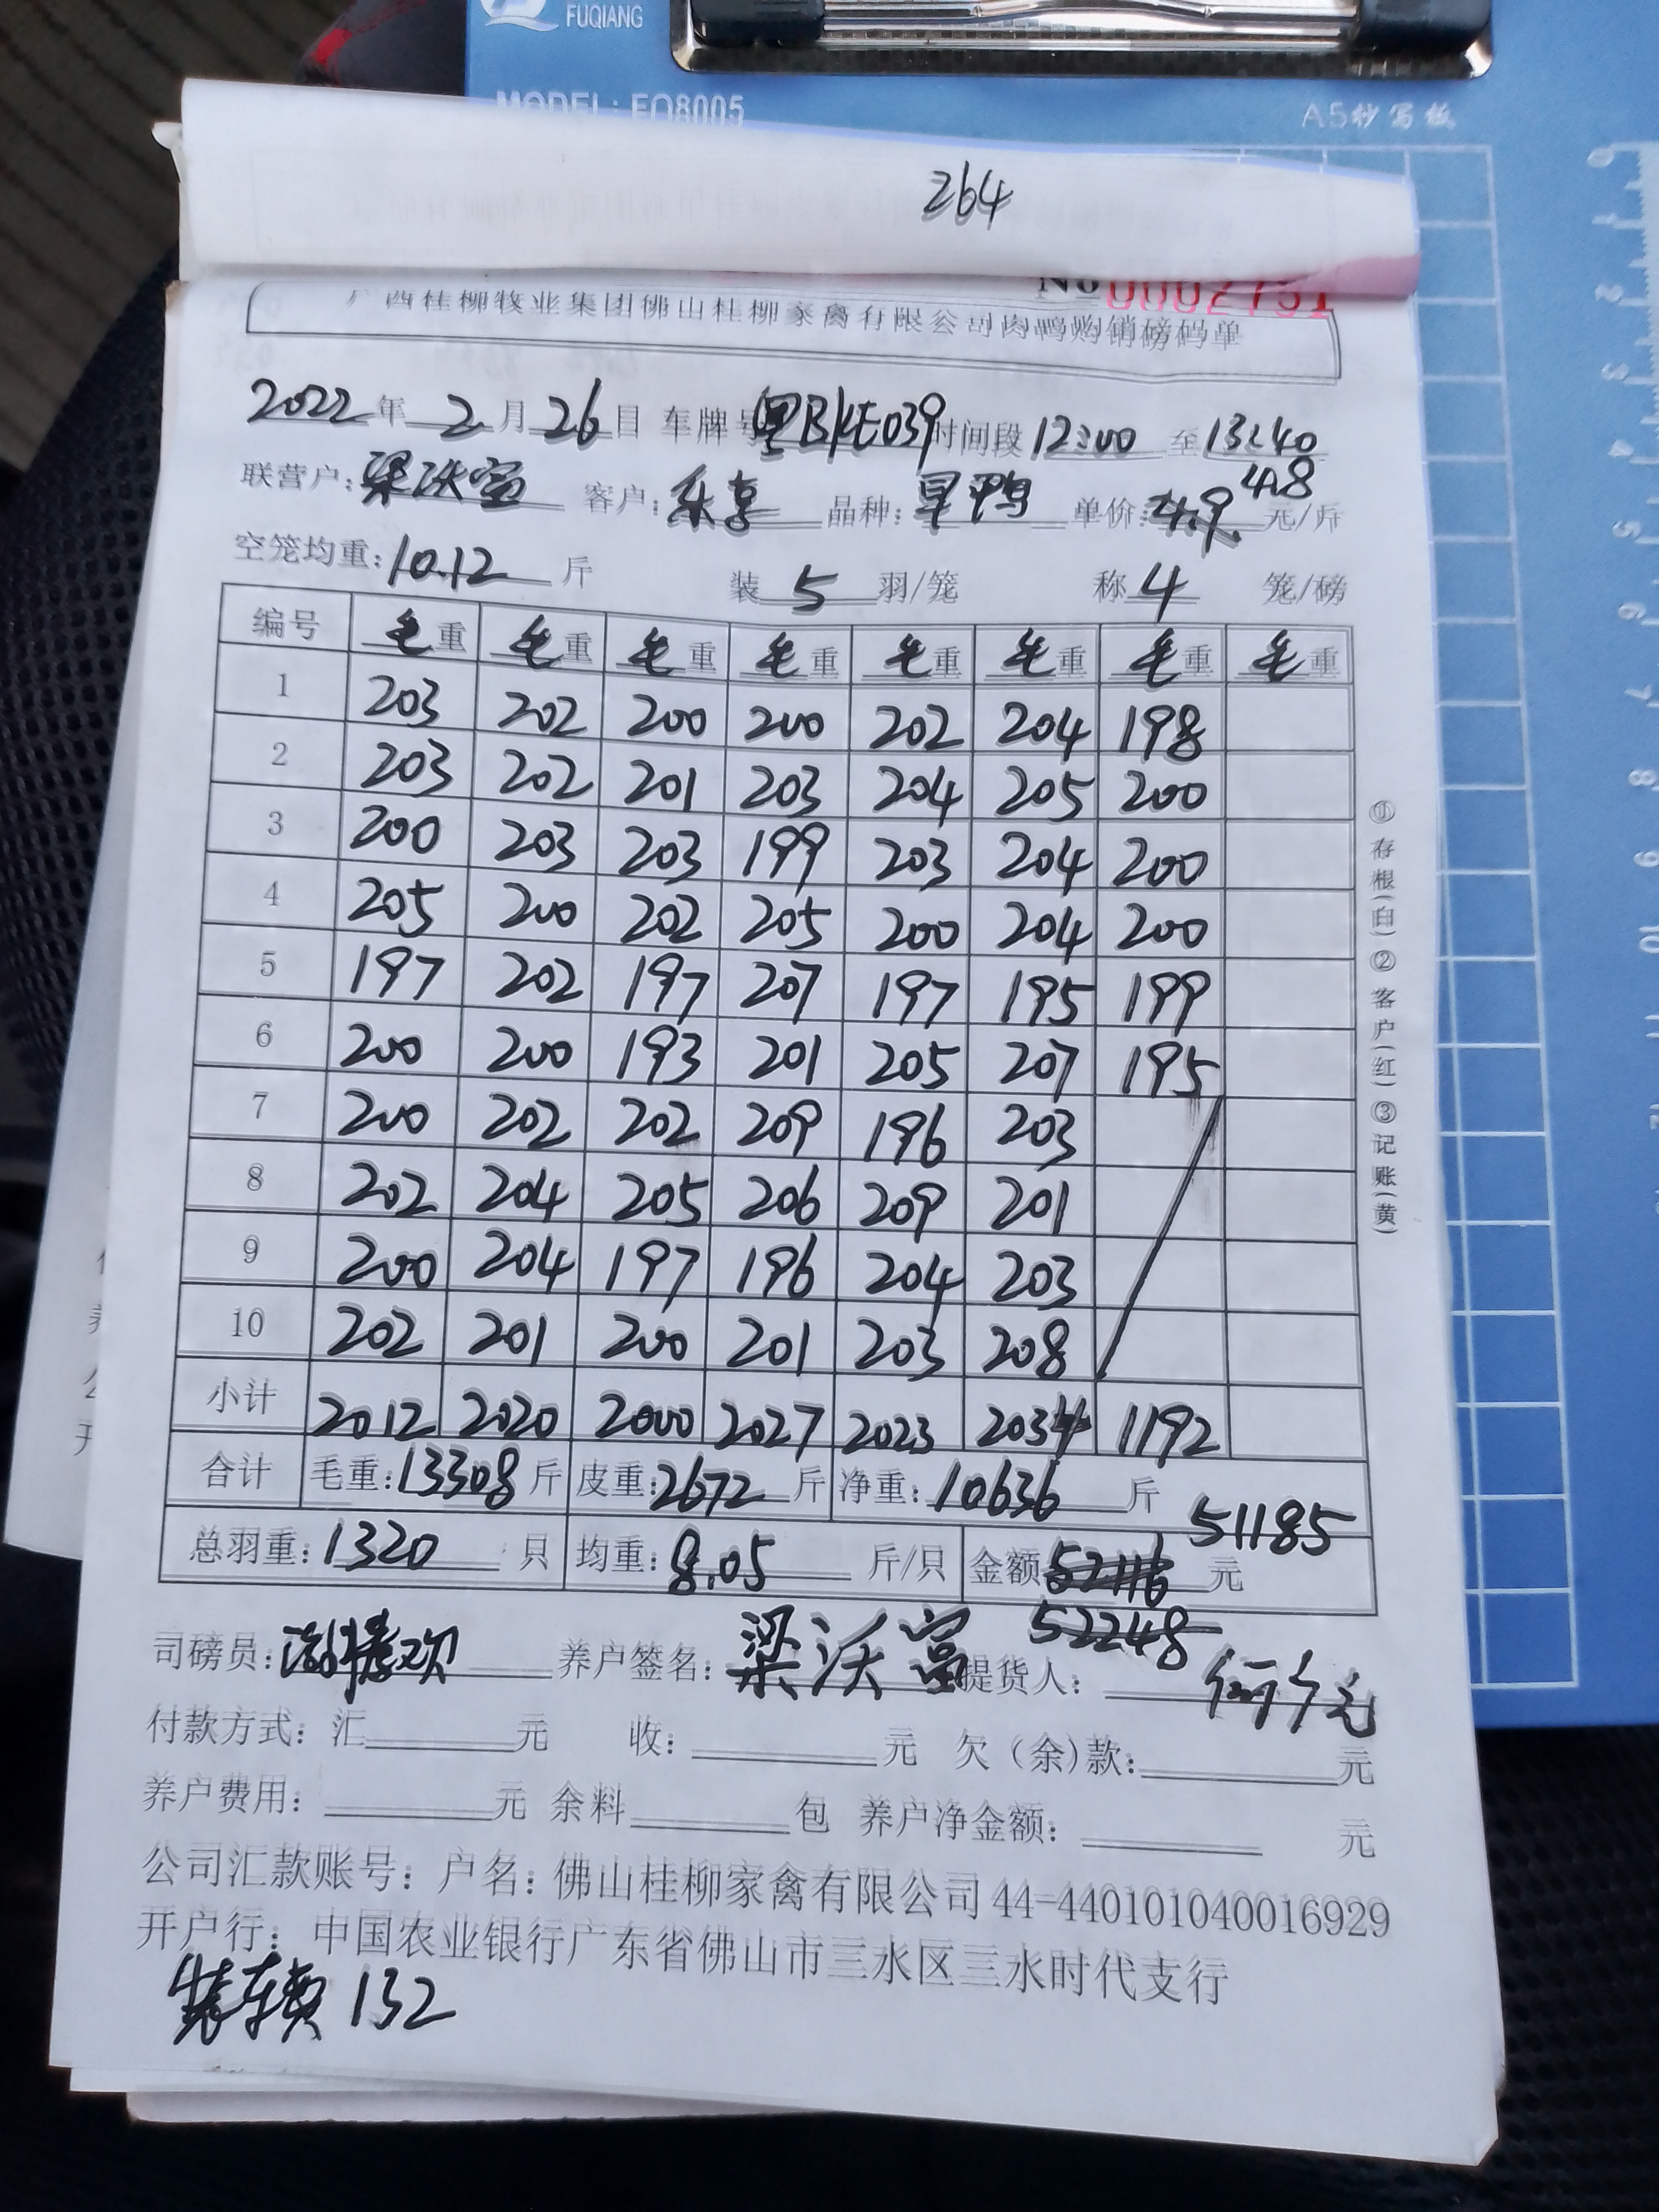 FUQIANG
MODEL: FQ8005
A5抄写板
264
No 0002751
广西桂柳牧业集团佛山桂柳家禽有限公司肉鸭购销磅码单
2022年 2月 26日 车牌号 粤BKE039 时间段 12:00 至 13:40
4.8
联营户: 梁沃富 客户: 东 品种: 旱鸭 单价: 4.9 元/斤
空笼均重: 10.12 斤 装 5 羽/笼 称 4 笼/磅
编号 毛重 毛重 毛重 毛重 毛重 毛重 毛重 毛重
1 203 202 200 200 202 204 198
2 203 202 201 203 204 205 200
3 200 203 203 199 203 204 200
4 205 200 202 205 200 204 200
5 197 202 197 207 197 195 199
6 200 200 193 201 205 207 195
7 200 202 202 209 196 203
8 202 204 205 206 209 201
9 200 204 197 196 204 203
10 202 201 200 201 203 208
小计 2012 2020 2000 2027 2023 2034 1192
合计 毛重: 13308 斤 皮重: 2672 斤 净重: 10636 斤
51185
总羽重: 1320 只 均重: 8.05 斤/只 金额 52116 元
52248
司磅员: 养户签名: 梁沃富 提货人:
付款方式: 汇 元 收: 元 欠(余)款: 元
养户费用: 元 余料 包 养户净金额: 元
公司汇款账号: 户名: 佛山桂柳家禽有限公司 44-440101040016929
开户行: 中国农业银行广东省佛山市三水区三水时代支行
装车费 132
①存根(白)②客户(红)③记账(黄)